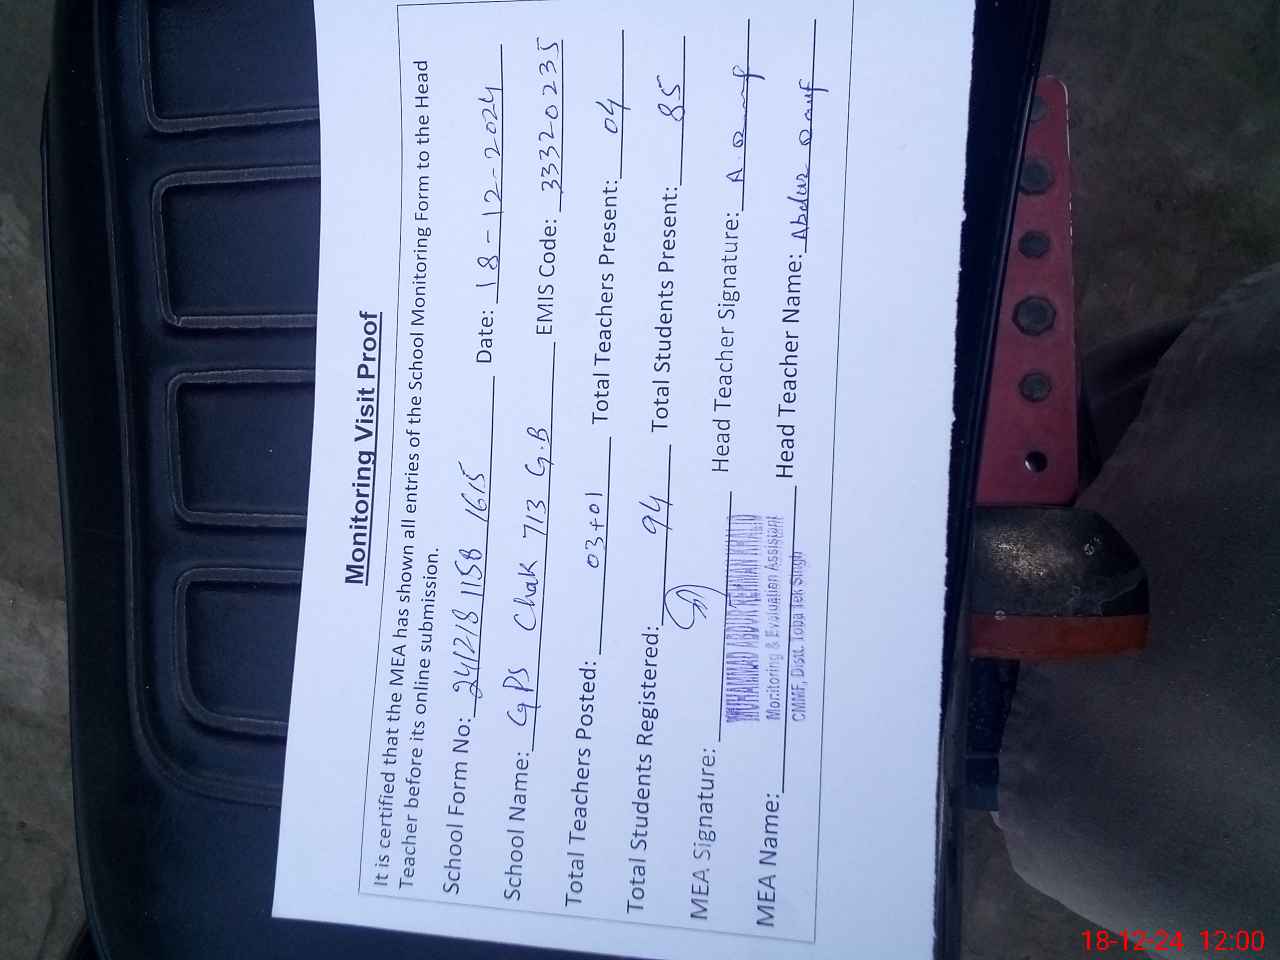 Monitoring Visit Proof
It is certified that the MEA has shown all entries of the School Monitoring Form to the Head
Teacher before its online submission.
School Form No: 241218 1158 1615 Date: 18-12-2024
School Name: GPS Chak 713 G.B EMIS Code: 33320235
Total Teachers Posted: 03+01 Total Teachers Present: 04
Total Students Registered: 94 Total Students Present: 85
MEA Signature: Head Teacher Signature: A.
MUHAMMAD ABDUR REHMAN KHALID
Monitoring & Evaluation Assistant
MEA Name: Head Teacher Name: Abdur Rauf
CMMF, Distt. Toba Tek Singh
18-12-24 12:00